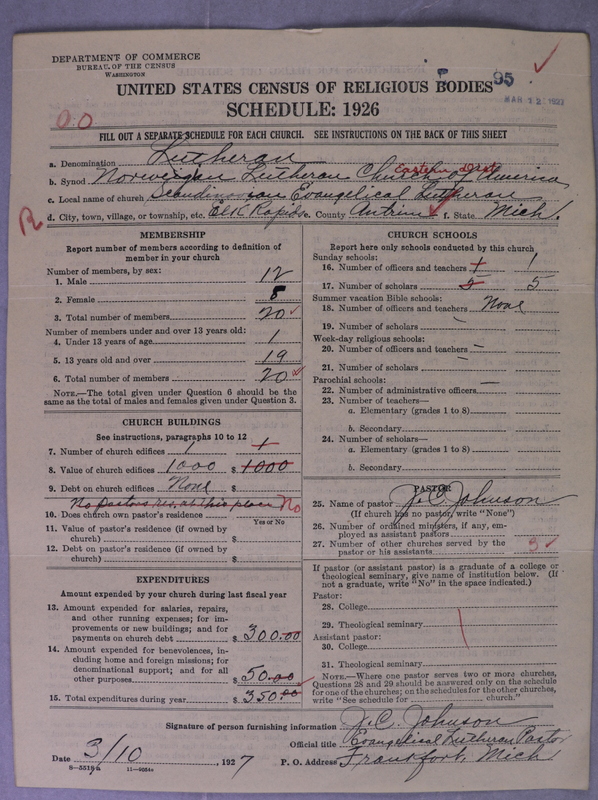 DEPARTMENT OF COMMERCE
BUREAU OF THE CENSUS
WASHINGTON
95
MAR 12 1927
UNITED STATES CENSUS OF RELIGIOUS BODIES
SCHEDULE: 1926
FILL OUT A SEPARATE SCHEDULE FOR EACH CHURCH. SEE INSTRUCTIONS ON THE BACK OF THIS SHEET
a. Denomination Lutheran
Eastern Dist
b. Synod Norwegian Lutheran Church of America
c. Local name of church Scandinavian Evangelical Lutheran
d. City, town, village, or township, etc. Elk Rapids e. County Antrim f. State Mich.
R
MEMBERSHIP
Report number of members according to definition of member in your church
Number of members, by sex:
1. Male 12
2. Female 8
3. Total number of members 20
Number of members under and over 13 years old:
4. Under 13 years of age 1
5. 13 years old and over 19
6. Total number of members 20
NOTE.—The total given under Question 6 should be
same as the total of males and females given under Question 3.
CHURCH BUILDINGS
See instructions, paragraphs 10 to 12
7. Number of church edifices 1 1
8. Value of church edifices 1000 $ 1000
9. Debt on church edifices None $
No Pastors res. at this place No
10. Does church own pastor's residence
Yes or No
11. Value of pastor's residence (if owned by
church) $
12. Debt on pastor's residence (if owned by
church) $
EXPENDITURES
Amount expended by your church during last fiscal year
13. Amount expended for salaries, repairs,
and other running expenses; for im-
provements or new buildings; and for
payments on church debt $ 300.00
14. Amount expended for benevolences, in-
cluding home and foreign missions; for
denominational support; and for all
other purposes $ 50.00
15. Total expenditures during year $ 350.00
CHURCH SCHOOLS
Report here only schools conducted by this church
Sunday schools:
16. Number of officers and teachers 1 1
17. Number of scholars 5 5
Summer vacation Bible schools:
18. Number of officers and teachers None
19. Number of scholars –
Week-day religious schools:
20. Number of officers and teachers –
21. Number of scholars –
Parochial schools: –
22. Number of administrative officers
23. Number of teachers—
a. Elementary (grades 1 to 8)
b. Secondary
24. Number of scholars—
a. Elementary (grades 1 to 8)
b. Secondary
PASTOR
25. Name of pastor J. C. Johnson
(If church has no pastor, write "None")
26. Number of ordained ministers, if any, em-
ployed as assistant pastors
27. Number of other churches served by the
pastor or his assistants 3
If pastor (or assistant pastor) is a graduate of a college or
theological seminary, give name of institution below. (If
not a graduate, write "No" in the space indicated.)
Pastor:
28. College
29. Theological seminary
Assistant pastor:
30. College
31. Theological seminary
NOTE.—Where one pastor serves two or more churches,
Questions 28 and 29 should be answered only on the schedule
for one of the churches; on the schedules for the other churches,
write "See schedule for church."
Signature of person furnishing information J. C. Johnson
Official title Evangelical Lutheran Pastor
Date 3/10, 1927 P. O. Address Frankfort, Mich